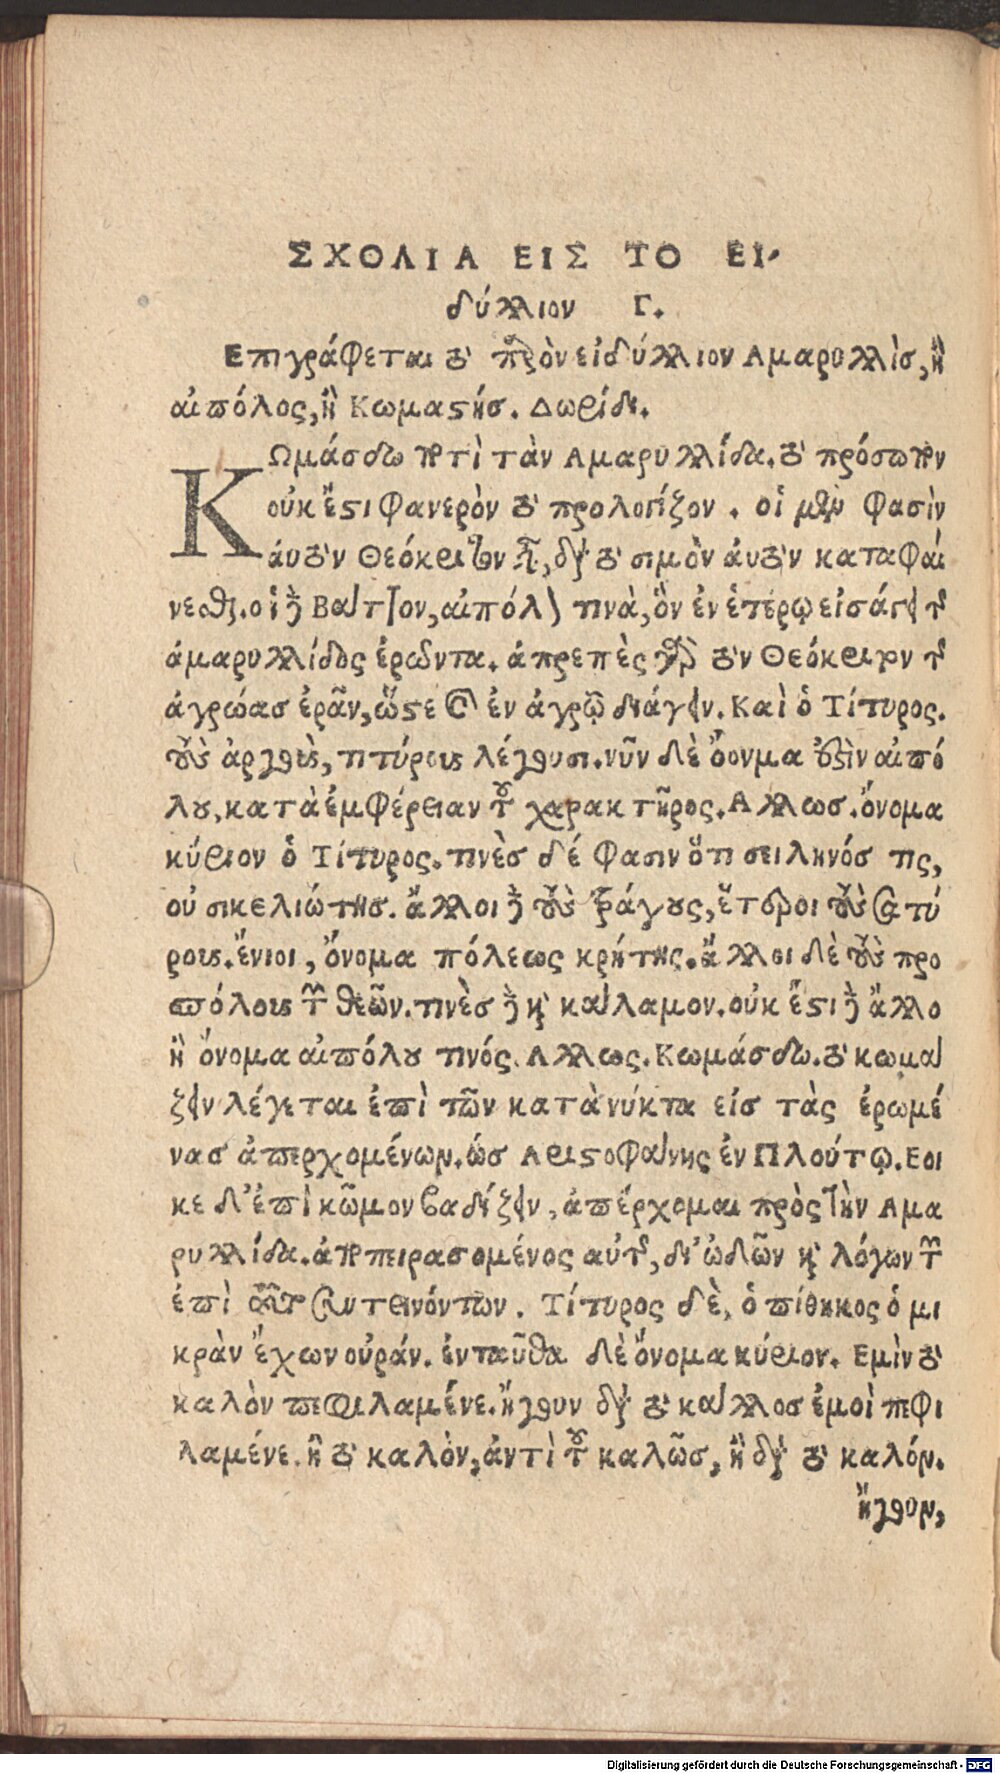 ΣΧΟΛΙΑ ΕΙΣ ΤΟ ΕΙ-
δύλλιον Γ.
Επιγράφεται τὸ παρὸν εἰδύλλιον Αμαρυλλὶς, ἢ
αἰπόλος, ἢ Κωμαστής. Δωρίδι.
ΚΩμάσδω ποτὶ τὰν Αμαρυλλίδα. τὸ πρόσωπον
οὐκ ἔστι φανερὸν τὸ προλογίζον. οἱ μὲν φασὶν
ἀυτὸν Θεόκριτον εἶναι, διὰ τὸ σιμὸν ἀυτὸν καταφαί
νεσθαι. οἱ δὲ Βάττον, αἰπόλον τινὰ, ὃν ἐν ἑτέρῳ εἰσάγει τῆς
ἀμαρυλλίδος ἐρῶντα. ἀπρεπὲς γὰρ τὸν Θεόκριτον τῆς
ἀγρώας ἐρᾶν, ὥστε καὶ ἐν ἀγρῷ διάγειν. Καὶ ὁ Τίτυρος.
τοὺς ἀρχθιὺς, τιτύρους λέγουσι. νῦν δὲ ὄονμα ἐστὶν αἰπό
λου, κατὰ ἐμφέρειαν τοῦ χαρακτῆρος. Αλλως. ὄνομα
κύριον ὁ Τίτυρος. τινὲς δέ φασιν ὅτι σειληνός τις,
οὐ σικελιώτης. ἄλλοι δὲ τοὺς τράγους, ἕτεροι τοὺς σατύ
ρους. ἔνιοι, ὄνομα πόλεως κρήτης. ἄλλοι δὲ τοὺς προ
σπόλους τῶν θεῶν. τινὲς δὲ καὶ κάλαμον. οὐκ ἔστι δὲ ἄλλο
ἢ ὄνομα αἰπόλου τινός. Αλλως. Κωμάσδω. τὸ κωμά
ζειν λέγεται ἐπὶ τῶν κατὰ νύκτα εἰς τὰς ἐρωμέ
νας ἀπερχομένων. ὡς Αριστοφάνης ἐν Πλούτῳ. Εοι
κε δ᾽ ἐπὶ κῶμον βαδίζειν, ἀπέρχομαι πρὸς τὴν Αμα
ρυλλίδα. ἀποπειρασομένος αὐτῆς, δι᾽ ὠδῶν καὶ λόγων τῶν
ἐπὶ συντεινόντων. Τίτυρος δὲ, ὁ πίθηκος ὁ μι
κρὰν ἔχων οὐράν. ἐνταῦθα δὲ ὄνομα κύριον. Εμὶν τὸ
καλὸν πεφιλαμένε. ἤγουν διὰ τὸ κάλλος ἐμοὶ πεφι
λαμένε. ἢ τὸ καλὸν, ἀντὶ τοῦ καλῶς, ἢ διὰ τὸ καλόν.
ἤγουν,
Digitalisierung gefördert durch die Deutsche Forschungsgemeinschaft - DFG